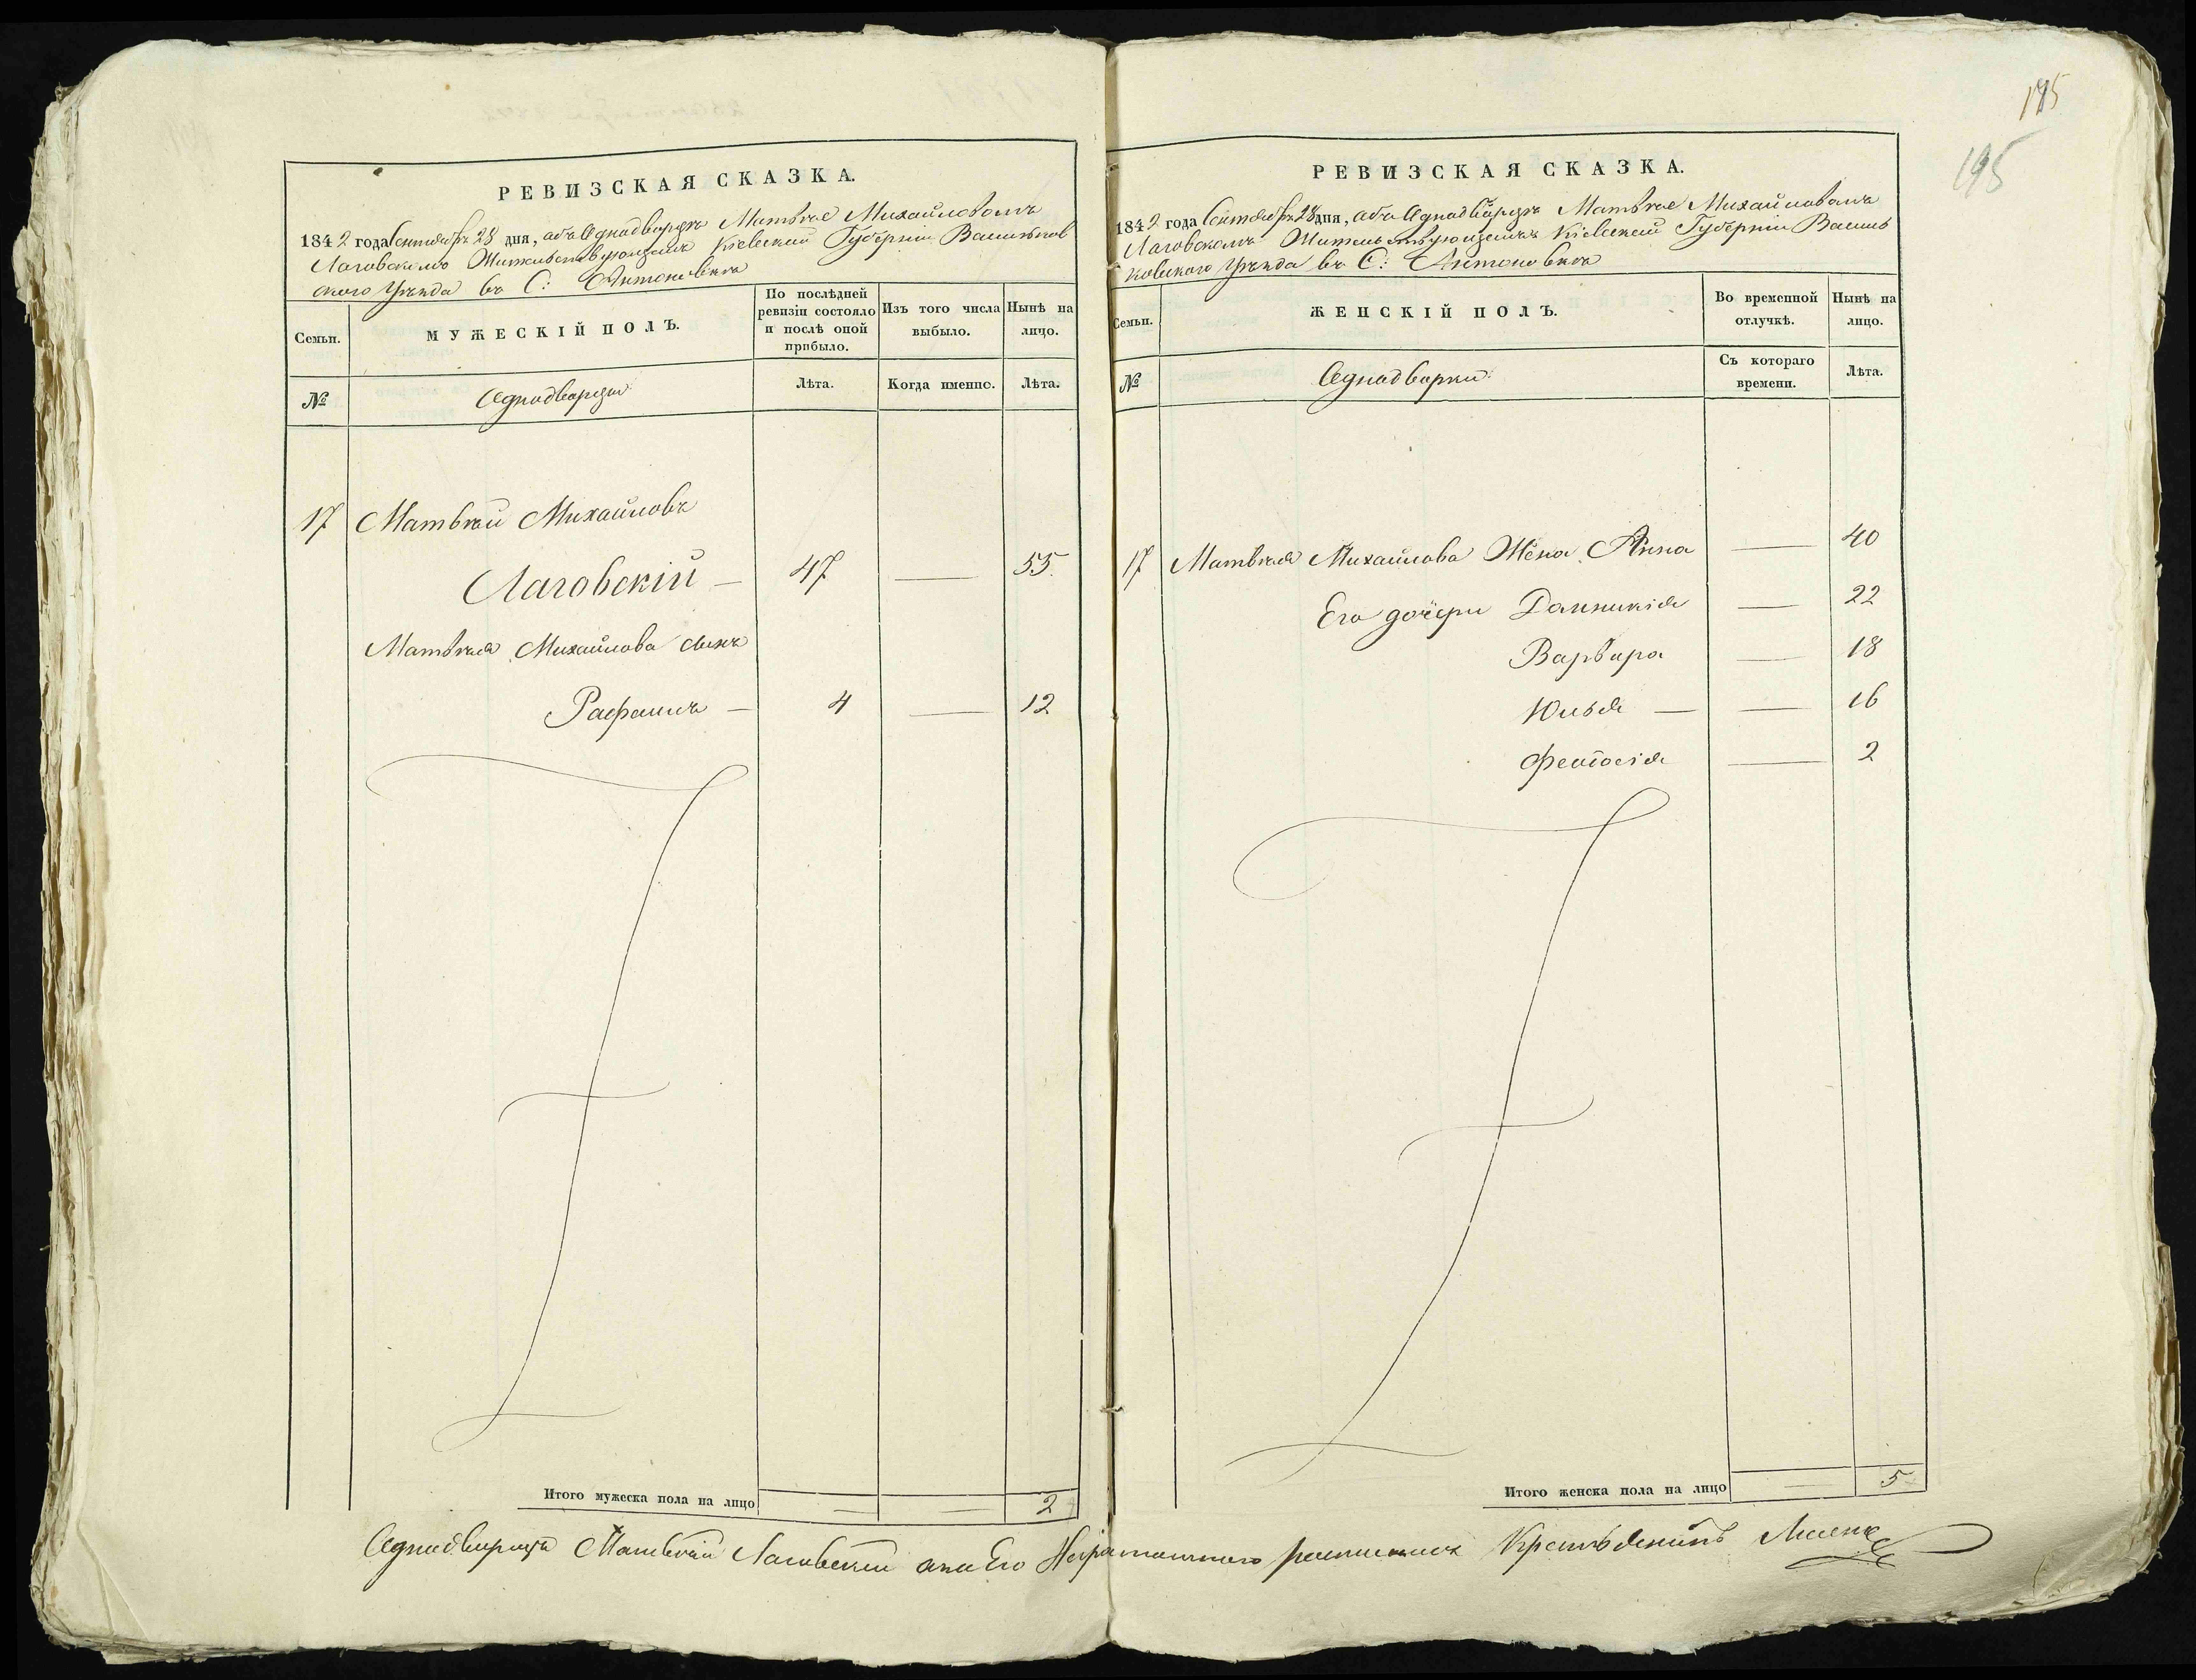 РЕВИЗСКАЯ СКАЗКА.
1842 года Сентября 28 дня, объ Однодворцѣ Матвѣе Михайловомъ
Лаговскимъ Жительствующемъ Кіевской Губерніи Васильков
ского Уѣзда въ С: Антоновкѣ
Семьи.
МУЖЕСКІЙ ПОЛЪ.
По послѣдней ревизіи состояло и послѣ оной прибыло.
Изъ того числа выбыло.
Нынѣ на лицо.
№
Однодворцы
Лѣта.
Когда именно.
Лѣта.
17 Матвѣй Михайловъ
Лаговскій — 47 — 55.
Матвѣя Михайлова сынъ
Рафаилъ — 4 — 12
Итого мужеска пола на лицо 2
175
195
РЕВИЗСКАЯ СКАЗКА.
1842 года Сентября 28 дня, объ Однодворцѣ Матвѣе Михайловомъ
Лаговскомъ Жительствующемъ Кіевской Губерніи Василь
ковского Уѣзда въ С: Антоновкѣ
Семьи.
ЖЕНСКІЙ ПОЛЪ.
Во временной отлучкѣ.
Нынѣ на лицо.
№
Однодворки
Съ котораго времени.
Лѣта.
17 Матвѣя Михайлова Жена Анна — 40
Его дочери Домникія — 22
Варвара — 18
Юлья — — 16
Феодосія — 2
Итого женска пола на лицо — 5
Однодворецъ Матвѣй Лаговскій а по Его Неграмотного росписался Крестьянинъ